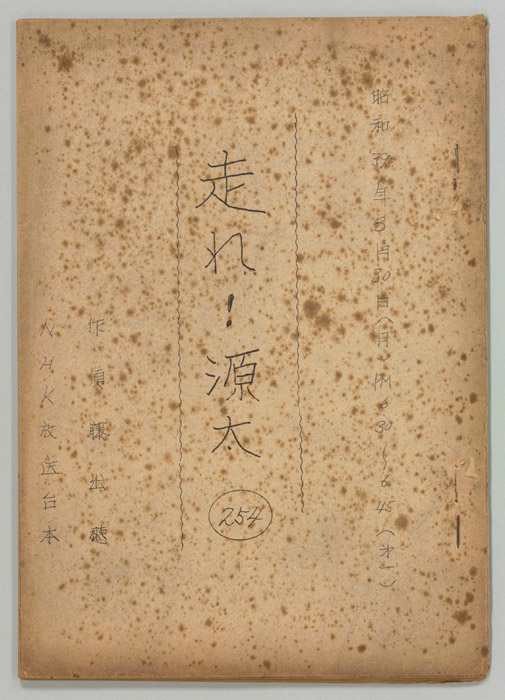 昭和39年3月30日(月)PM6.30~6.45(オ一)
走れ!源太
254
作 須藤出穂
NHK放送台本